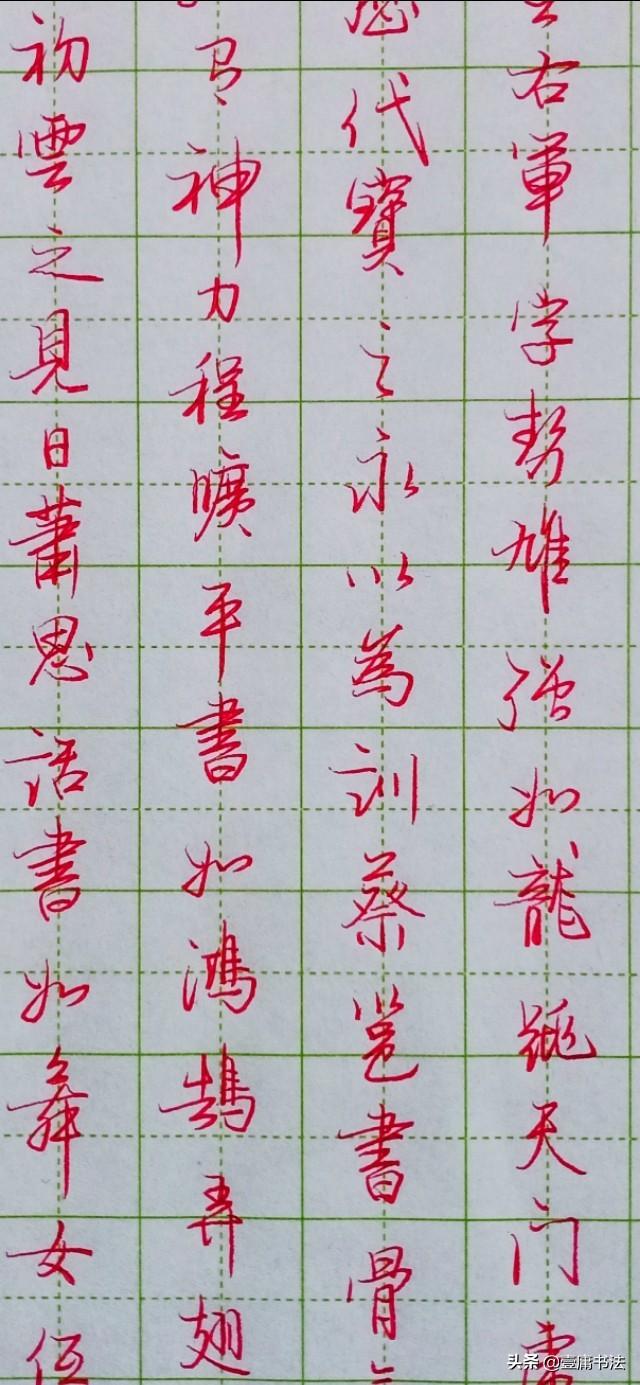 王右軍字勢雄強如龍跳天門
代寶之永以為訓蔡邕書骨
有神力程曠平書如鴻鵠弄翅
初雲之見日蕭思話書如舞女低
头条 @壹庸书法